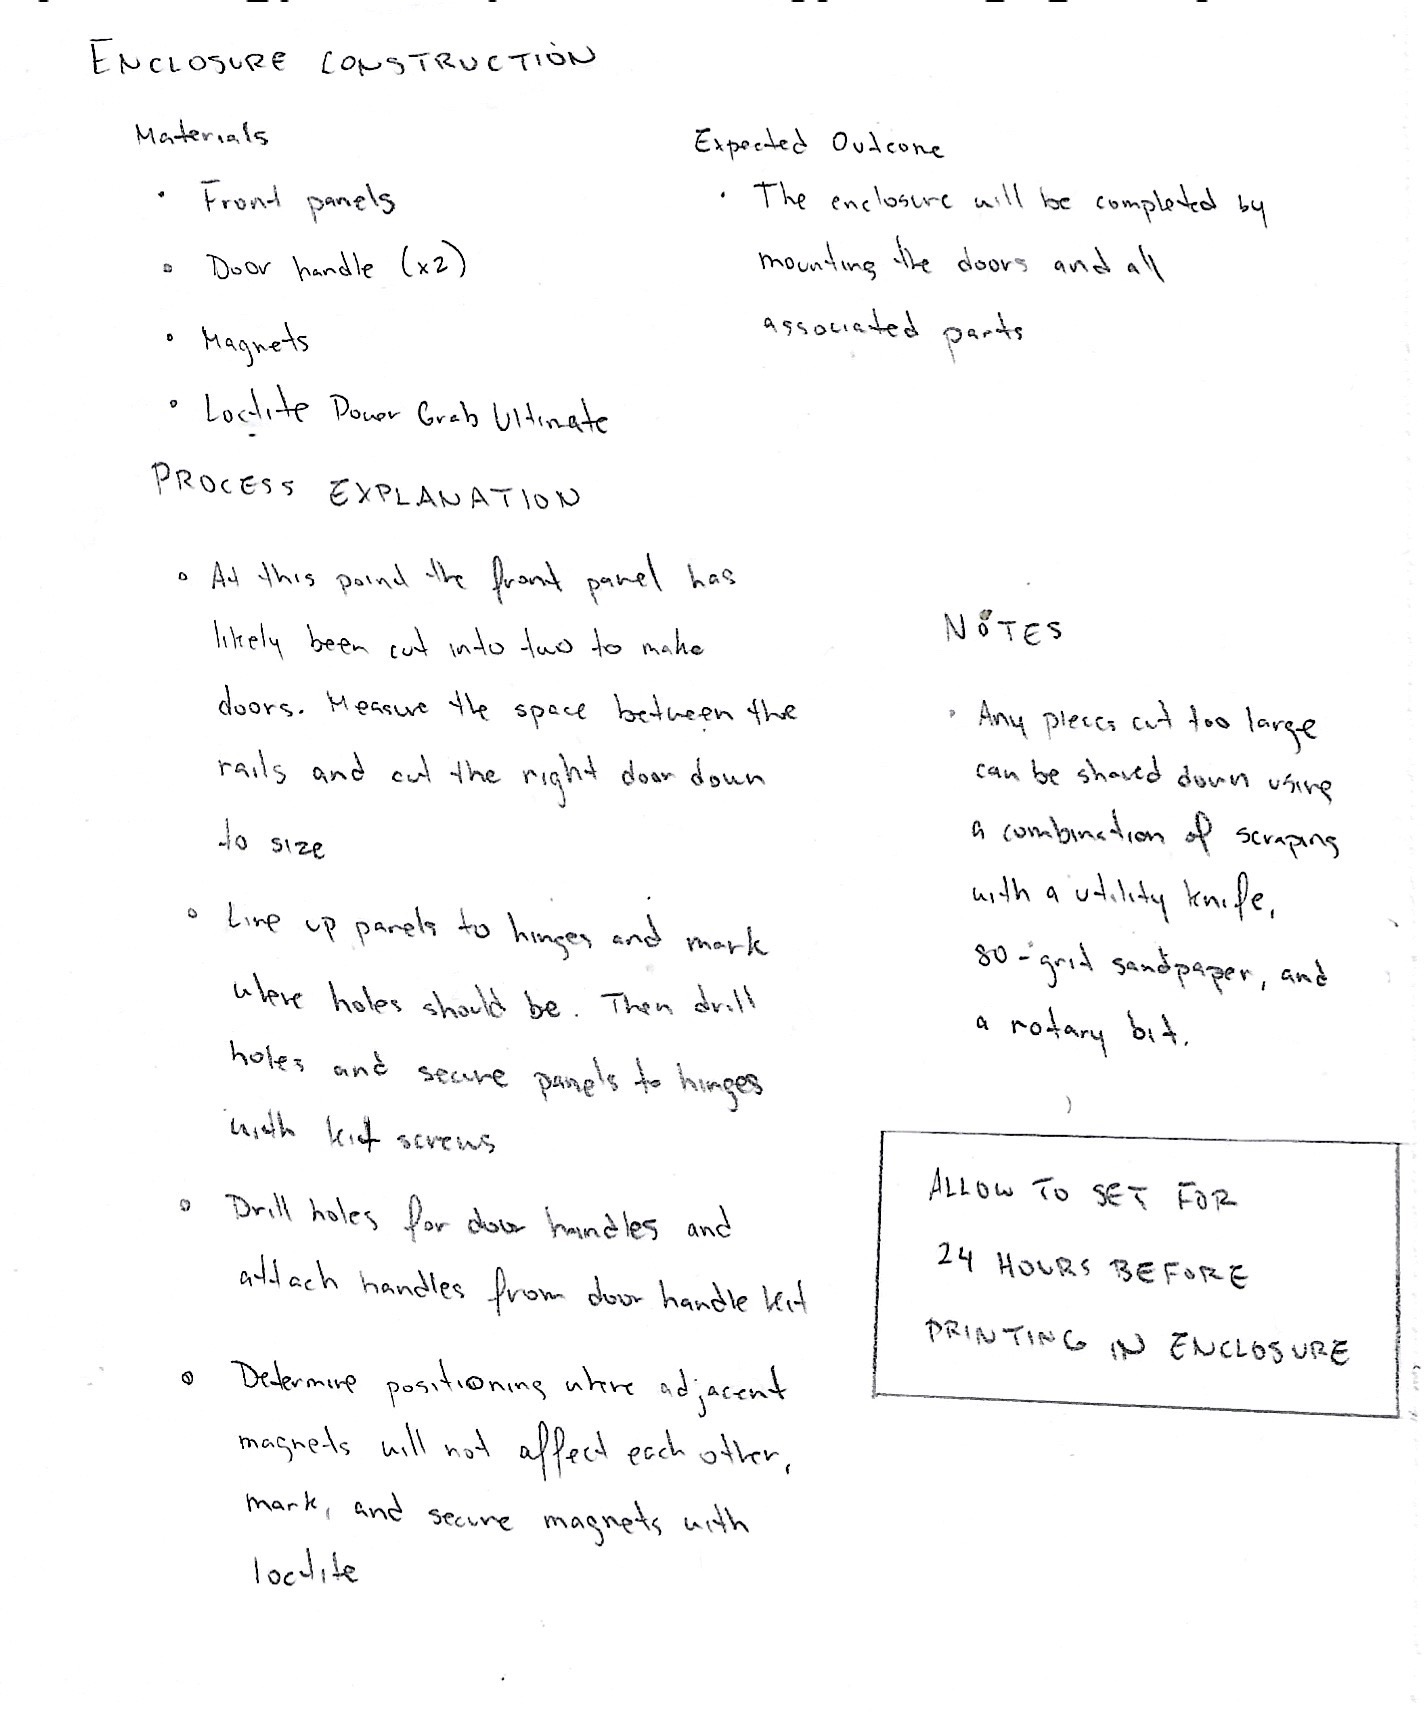 ENCLOSURE CONSTRUCTION
Materials
• Front panels
• Door handle (x2)
• Magnets
• Loctite Power Grab Ultimate
Expected Outcome
• The enclosure will be completed by
mounting the doors and all
associated parts
PROCESS EXPLANATION
• At this point the front panel has
likely been cut into two to make
doors. Measure the space between the
rails and cut the right door down
to size
• Line up panels to hinges and mark
where holes should be. Then drill
holes and secure panels to hinges
with kit screws
• Drill holes for door handles and
attach handles from door handle kit
• Determine positioning where adjacent
magnets will not affect each other,
mark, and secure magnets with
loctite
NOTES
• Any pieces cut too large
can be shaved down using
a combination of scraping
with a utility knife,
80-grit sandpaper, and
a rotary bit.
ALLOW TO SET FOR
24 HOURS BEFORE
PRINTING IN ENCLOSURE